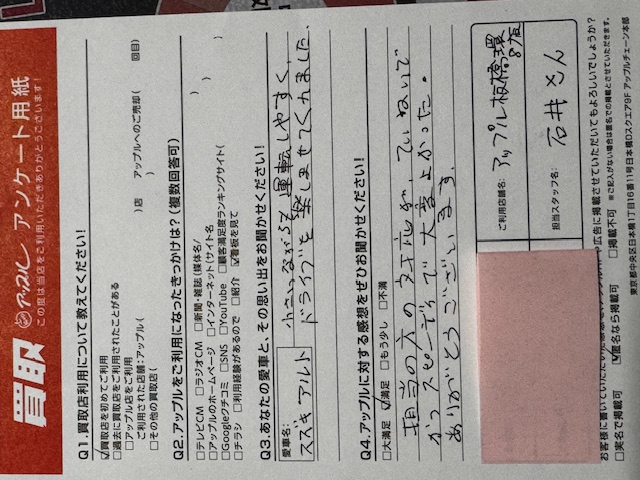 買取 アップル アンケート用紙
この度は当店をご利用いただきありがとうございます!
Q1.買取店利用について教えてください!
☑買取店を初めてご利用
□過去に買取店をご利用されたことがある
□アップル店をご利用
ご利用された店舗:アップル( )店 アップルへのご売却( 回目)
□その他の買取店( )
Q2.アップルをご利用になったきっかけは?(複数回答可)
□テレビCM □ラジオCM □新聞・雑誌(媒体名/ )
□アップルのホームページ □インターネット(サイト名 )
□Google口コミ □SNS □YouTube □顧客満足度ランキングサイト( )
□チラシ □利用経験があるので □紹介 ☑看板を見て
Q3.あなたの愛車と、その思い出をお聞かせください!
愛車名:
スズキ アルト
小さいながらも運転しやすく、
ドライブを楽しませてくれました。
Q4.アップルに対する感想をぜひお聞かせください!
□大満足 ☑満足 □もう少し □不満
担当の方の対応が、ていねいで
かつスピーディで大変よかった。
ありがとうございます。
ご利用店舗名: アップル板橋環8店
担当スタッフ名: 石井さん
※ご記入がない場合は匿名での掲載とさせていただきます。
広告に掲載させていただいてもよろしいでしょうか?
□実名で掲載可 ☑匿名なら掲載可 □掲載不可
東京都中央区日本橋1丁目16番11号日本橋Dスクエア9F アップルチェーン本部